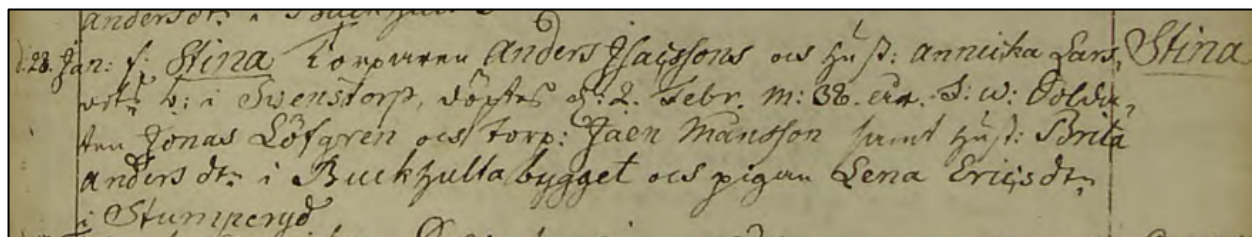 andersdtr i Buckhult
d. 28. Jan: f: Stina Torparen Anders Jsacssons och hust: annicka Lars, Stina
dotrs b: i Swenstorp, döptes d: 2. Febr. m: 38. åra. S: w: Solda,
ten Jonas Löfgren och torp: Jaen Månsson samt hust: Brita
anders dtr i Buckhultabygget och pigan Lena Ericsdtr
i Stumperyd